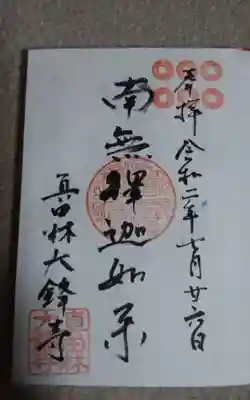 奉拝 令和二年七月廿六日
南無釋迦如来
真田林大鋒寺